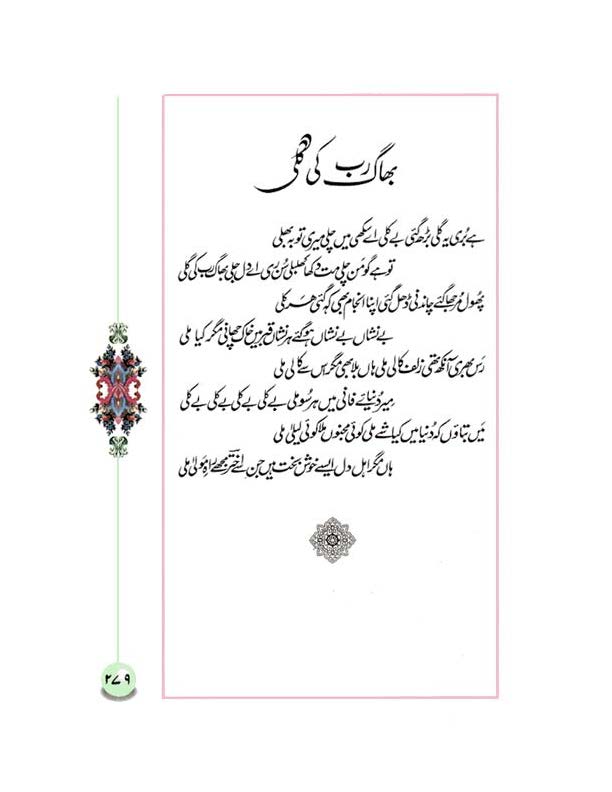 بھاگ رب کی گلی
ہے بُری یہ گلی بڑھ گئی بے کلی اے سکھی میں چلی میری توبہ بھلی
تو ہے گو مَن چلی مت دکھا کھلبلی سُن ری اے دل جلی بھاگ رب کی گلی
پھُول مُرجھا گئے چاندنی ڈھل گئی اپنا انجام بھی کہہ گئی ہر کلی
بے نشاں بے نشاں ہو گئے ہر نشاں قبر میں خاک چھانی مگر کیا ملی
رَس بھری آنکھ تھی زلف کالی ملی ہاں بلا بھی مگر اس سے کالی ملی
میر دُنیائے فانی میں ہر سُو ملی بے کلی بے کلی بے کلی بے کلی
میں بتاؤں کہ دُنیا میں کیا شے ملی کوئی مجنوں ملا کوئی لیلیٰ ملی
ہاں مگر اہلِ دل ایسے خوش بخت ہیں جن سے اختؔر مجھے راہِ مولیٰ ملی
۲۷۹